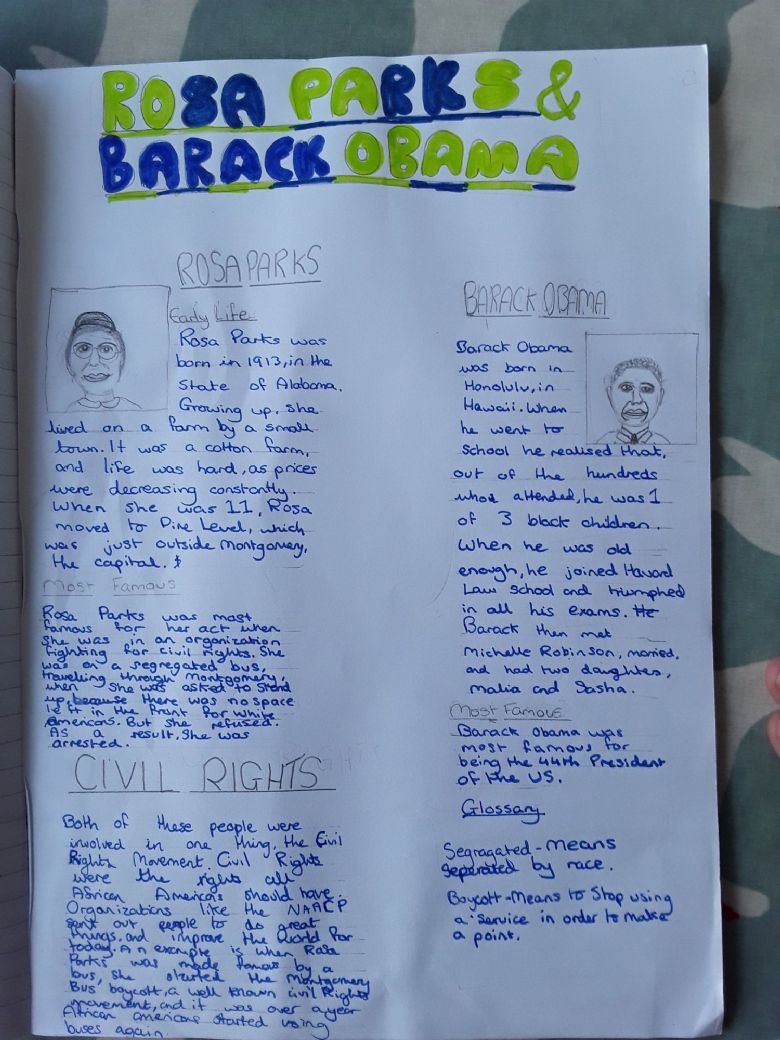 ROSA PARKS &
BARACK OBAMA
ROSA PARKS
Early Life
Rosa Parks was
born in 1913, in the
State of Alabama.
Growing up, she
lived on a farm by a small
town. It was a cotton farm,
and life was hard, as prices
were decreasing constantly.
When she was 11, Rosa
moved to Pine Level, which
was just outside Montgomery,
the capital.
Most Famous
Rosa Parks was most
famous for her act when
she was in an organization
fighting for civil rights. She
was on a segregated bus,
travelling through Montgomery,
when she was asked to stand
up, because there was no space
left in the front for white
Americans. But she refused.
As a result, she was
arrested.
CIVIL RIGHTS
Both of these people were
involved in one thing, the Civil
Rights Movement. Civil Rights
were the rights all
African Americans should have.
Organizations like the NAACP
sent out people to do great
things, and improve the world for
today. An example is when Rosa
Parks was made famous by a
bus, she started the Montgomery
Bus boycott, a well known civil Rights
movement, and it was over a year
African americans started using
buses again.
BARACK OBAMA
Barack Obama
was born in
Honolulu, in
Hawaii. When
he went to
school he realised that,
out of the hundreds
who attended, he was 1
of 3 black children.
When he was old
enough, he joined Havard
Law School and triumphed
in all his exams. He
Barack then met
Michelle Robinson, married,
and had two daughters,
malia and Sasha.
Most Famous
Barack Obama was
most famous for
being the 44th President
of the US.
Glossary
Segragated - Means
Seperated by race.
Boycott - Means to stop using
a service in order to make
a point.